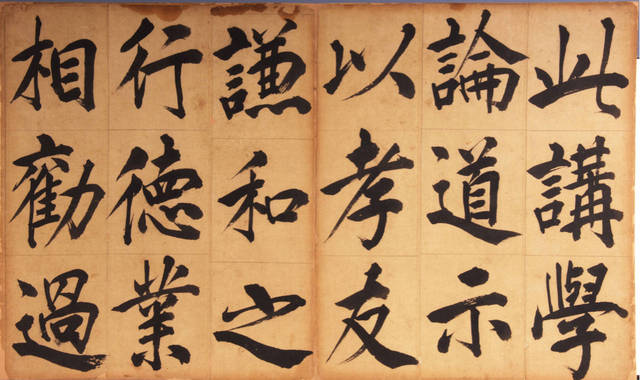 此講學
論道示
以孝友
謙和之
行德業
相勸過